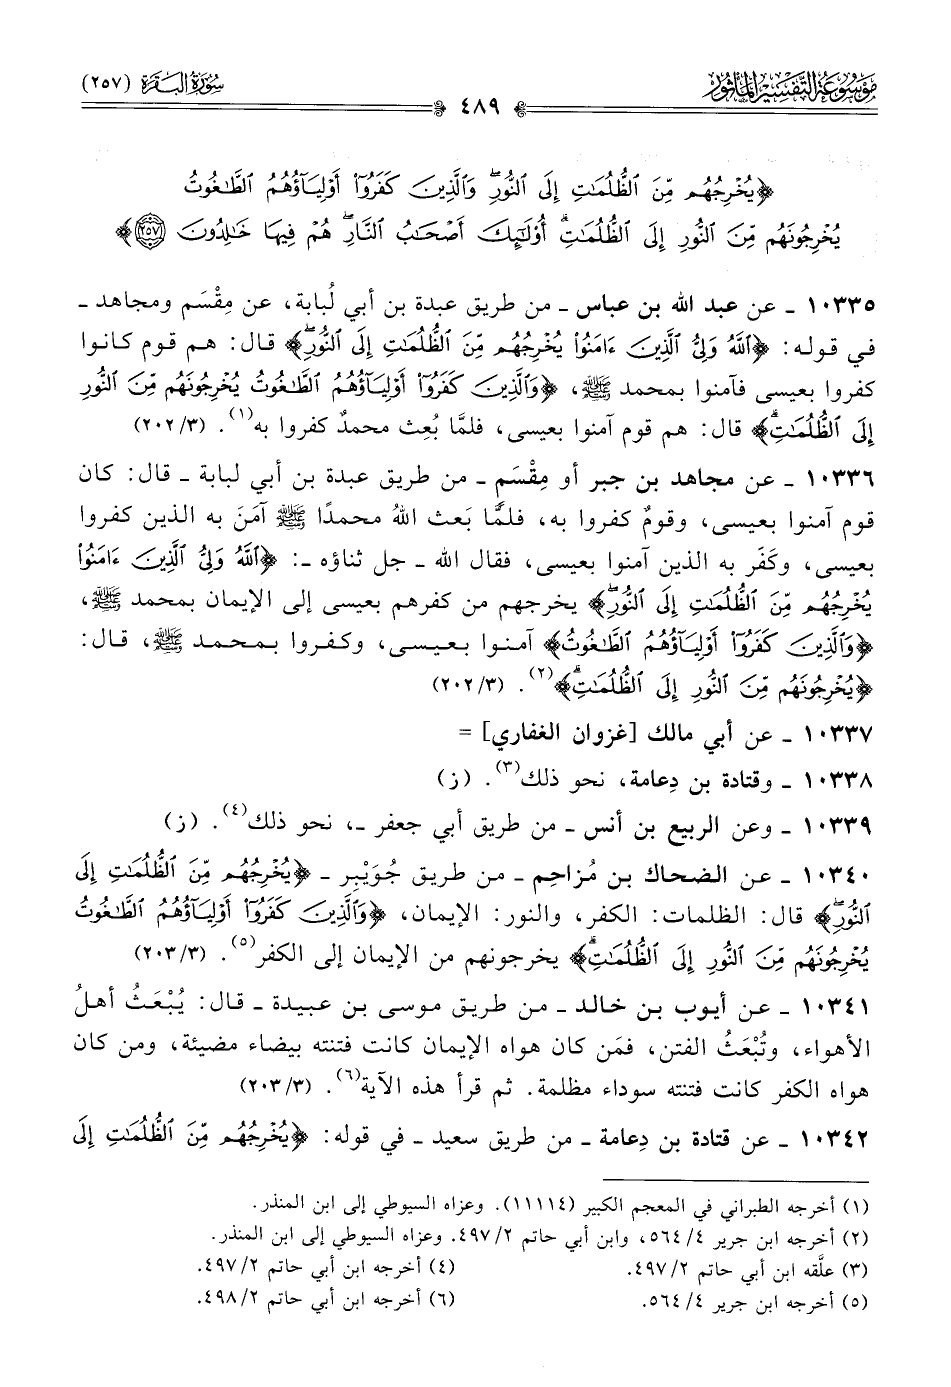 موسوعة التفسير المأثور
سورة البقرة (٢٥٧)
٤٨٩
﴿يُخْرِجُهُم مِّنَ ٱلظُّلُمَٰتِ إِلَى ٱلنُّورِۖ وَٱلَّذِينَ كَفَرُوٓا۟ أَوْلِيَآؤُهُمُ ٱلطَّٰغُوتُ
يُخْرِجُونَهُم مِّنَ ٱلنُّورِ إِلَى ٱلظُّلُمَٰتِۗ أُو۟لَٰٓئِكَ أَصْحَٰبُ ٱلنَّارِۖ هُمْ فِيهَا خَٰلِدُونَ ٢٥٧﴾
١٠٣٣٥ ـ عن عبد الله بن عباس ـ من طريق عبدة بن أبي لُبابة، عن مِقْسَم ومجاهد ـ
في قوله: ﴿ٱللَّهُ وَلِىُّ ٱلَّذِينَ ءَامَنُوا۟ يُخْرِجُهُم مِّنَ ٱلظُّلُمَٰتِ إِلَى ٱلنُّورِۖ﴾ قال: هم قوم كانوا
كفروا بعيسى فآمنوا بمحمد ﷺ، ﴿وَٱلَّذِينَ كَفَرُوٓا۟ أَوْلِيَآؤُهُمُ ٱلطَّٰغُوتُ يُخْرِجُونَهُم مِّنَ ٱلنُّورِ
إِلَى ٱلظُّلُمَٰتِۗ﴾ قال: هم قوم آمنوا بعيسى، فلمَّا بُعِث محمدٌ كفروا به(١). (٢٠٢/٣)
١٠٣٣٦ ـ عن مجاهد بن جبر أو مِقْسَم ـ من طريق عبدة بن أبي لبابة ـ قال: كان
قوم آمنوا بعيسى، وقومٌ كفروا به، فلمَّا بَعث اللهُ محمدًا ﷺ آمَنَ به الذين كفروا
بعيسى، وكَفَر به الذين آمنوا بعيسى، فقال الله ـ جل ثناؤه ـ: ﴿ٱللَّهُ وَلِىُّ ٱلَّذِينَ ءَامَنُوا۟
يُخْرِجُهُم مِّنَ ٱلظُّلُمَٰتِ إِلَى ٱلنُّورِۖ﴾ يخرجهم من كفرهم بعيسى إلى الإيمان بمحمد ﷺ،
﴿وَٱلَّذِينَ كَفَرُوٓا۟ أَوْلِيَآؤُهُمُ ٱلطَّٰغُوتُ﴾ آمنوا بعيسى، وكفروا بمحمد ﷺ، قال:
﴿يُخْرِجُونَهُم مِّنَ ٱلنُّورِ إِلَى ٱلظُّلُمَٰتِۗ﴾(٢). (٢٠٢/٣)
١٠٣٣٧ ـ عن أبي مالك [غزوان الغفاري] =
١٠٣٣٨ ـ وقتادة بن دِعامة، نحو ذلك(٣). (ز)
١٠٣٣٩ ـ وعن الربيع بن أنس ـ من طريق أبي جعفر ـ، نحو ذلك(٤). (ز)
١٠٣٤٠ ـ عن الضحاك بن مُزاحِم ـ من طريق جُوَيْبِر ـ ﴿يُخْرِجُهُم مِّنَ ٱلظُّلُمَٰتِ إِلَى
ٱلنُّورِۖ﴾ قال: الظلمات: الكفر، والنور: الإيمان، ﴿وَٱلَّذِينَ كَفَرُوٓا۟ أَوْلِيَآؤُهُمُ ٱلطَّٰغُوتُ
يُخْرِجُونَهُم مِّنَ ٱلنُّورِ إِلَى ٱلظُّلُمَٰتِۗ﴾ يخرجونهم من الإيمان إلى الكفر(٥). (٢٠٣/٣)
١٠٣٤١ ـ عن أيوب بن خالد ـ من طريق موسى بن عبيدة ـ قال: يُبْعَثُ أهلُ
الأهواء، وتُبْعَثُ الفتن، فمَن كان هواه الإيمان كانت فتنته بيضاء مضيئة، ومن كان
هواه الكفر كانت فتنته سوداء مظلمة. ثم قرأ هذه الآية(٦). (٢٠٣/٣)
١٠٣٤٢ ـ عن قتادة بن دِعامة ـ من طريق سعيد ـ في قوله: ﴿يُخْرِجُهُم مِّنَ ٱلظُّلُمَٰتِ إِلَى
(١) أخرجه الطبراني في المعجم الكبير (١١١١٤). وعزاه السيوطي إلى ابن المنذر.
(٢) أخرجه ابن جرير ٥٦٤/٤، وابن أبي حاتم ٤٩٧/٢. وعزاه السيوطي إلى ابن المنذر.
(٣) علَّقه ابن أبي حاتم ٤٩٧/٢. (٤) أخرجه ابن أبي حاتم ٤٩٧/٢.
(٥) أخرجه ابن جرير ٥٦٤/٤. (٦) أخرجه ابن أبي حاتم ٤٩٨/٢.